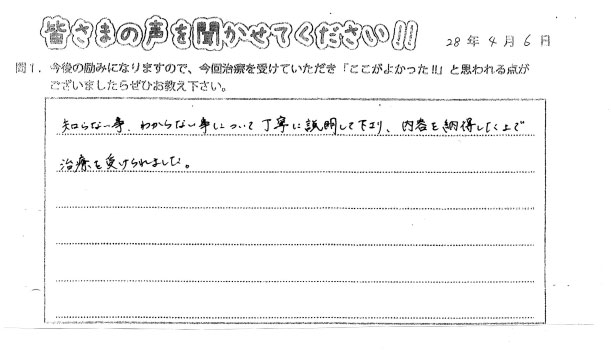 皆さまの声を聞かせてください!!
28年4月6日
問1．今後の励みになりますので、今回治療を受けていただき「ここがよかった!!」と思われる点が
ございましたらぜひお教え下さい。
知らない事、わからない事について丁寧に説明して下さり、内容を納得した上で
治療を受けられました。